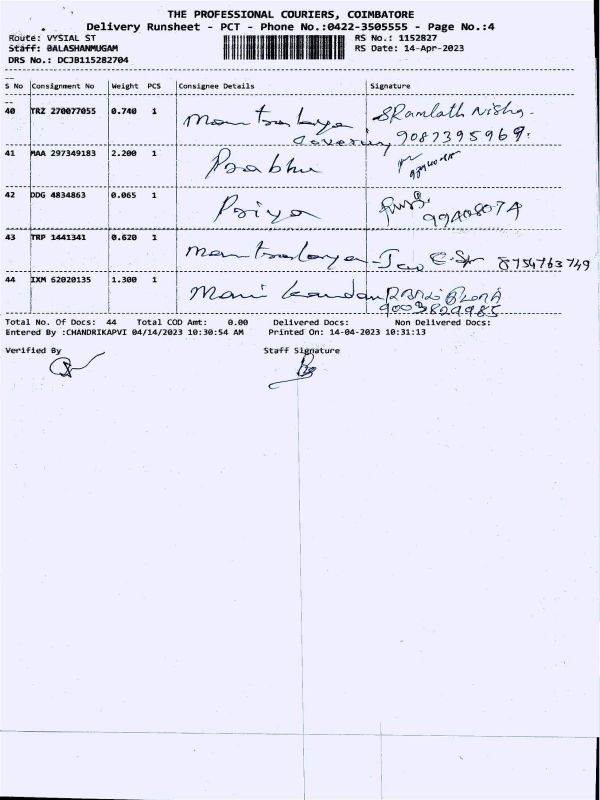 THE PROFESSIONAL COURIERS, COIMBATORE
Delivery Runsheet - PCT - Phone No.:0422-3505555 - Page No.:4
Route: VYSIAL ST RS No.: 1152827
Staff: BALASHANMUGAM RS Date: 14-Apr-2023
DRS No.: DCJB115282704
S No Consignment No Weight PCS Consignee Details Signature
40 TRZ 270077055 0.740 1 Mantralaya SRamlath Nisha.
9087395969.
41 MAA 297349183 2.200 1 Prabhu
42 DDG 4834863 0.065 1 Priya
43 TRP 1441341 0.620 1 Mantralaya 8754763749
44 IXM 62020135 1.300 1 Mani kandan
9003829985
Total No. Of Docs: 44 Total COD Amt: 0.00 Delivered Docs: Non Delivered Docs:
Entered By :CHANDRIKAPVI 04/14/2023 10:30:54 AM Printed On: 14-04-2023 10:31:13
Verified By Staff Signature